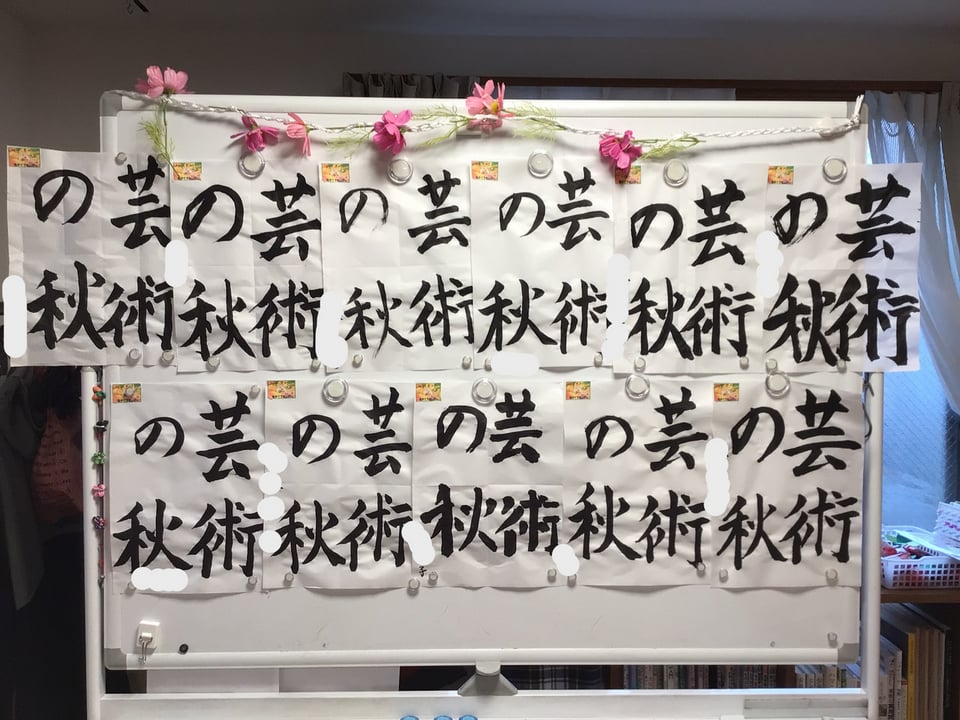 芸術
の秋
芸術
の秋
芸術
の秋
芸術
の秋
芸術
の秋
芸術
の秋
芸術
の秋
芸術
の秋
芸術
の秋
子
芸術
の秋
芸術
の秋